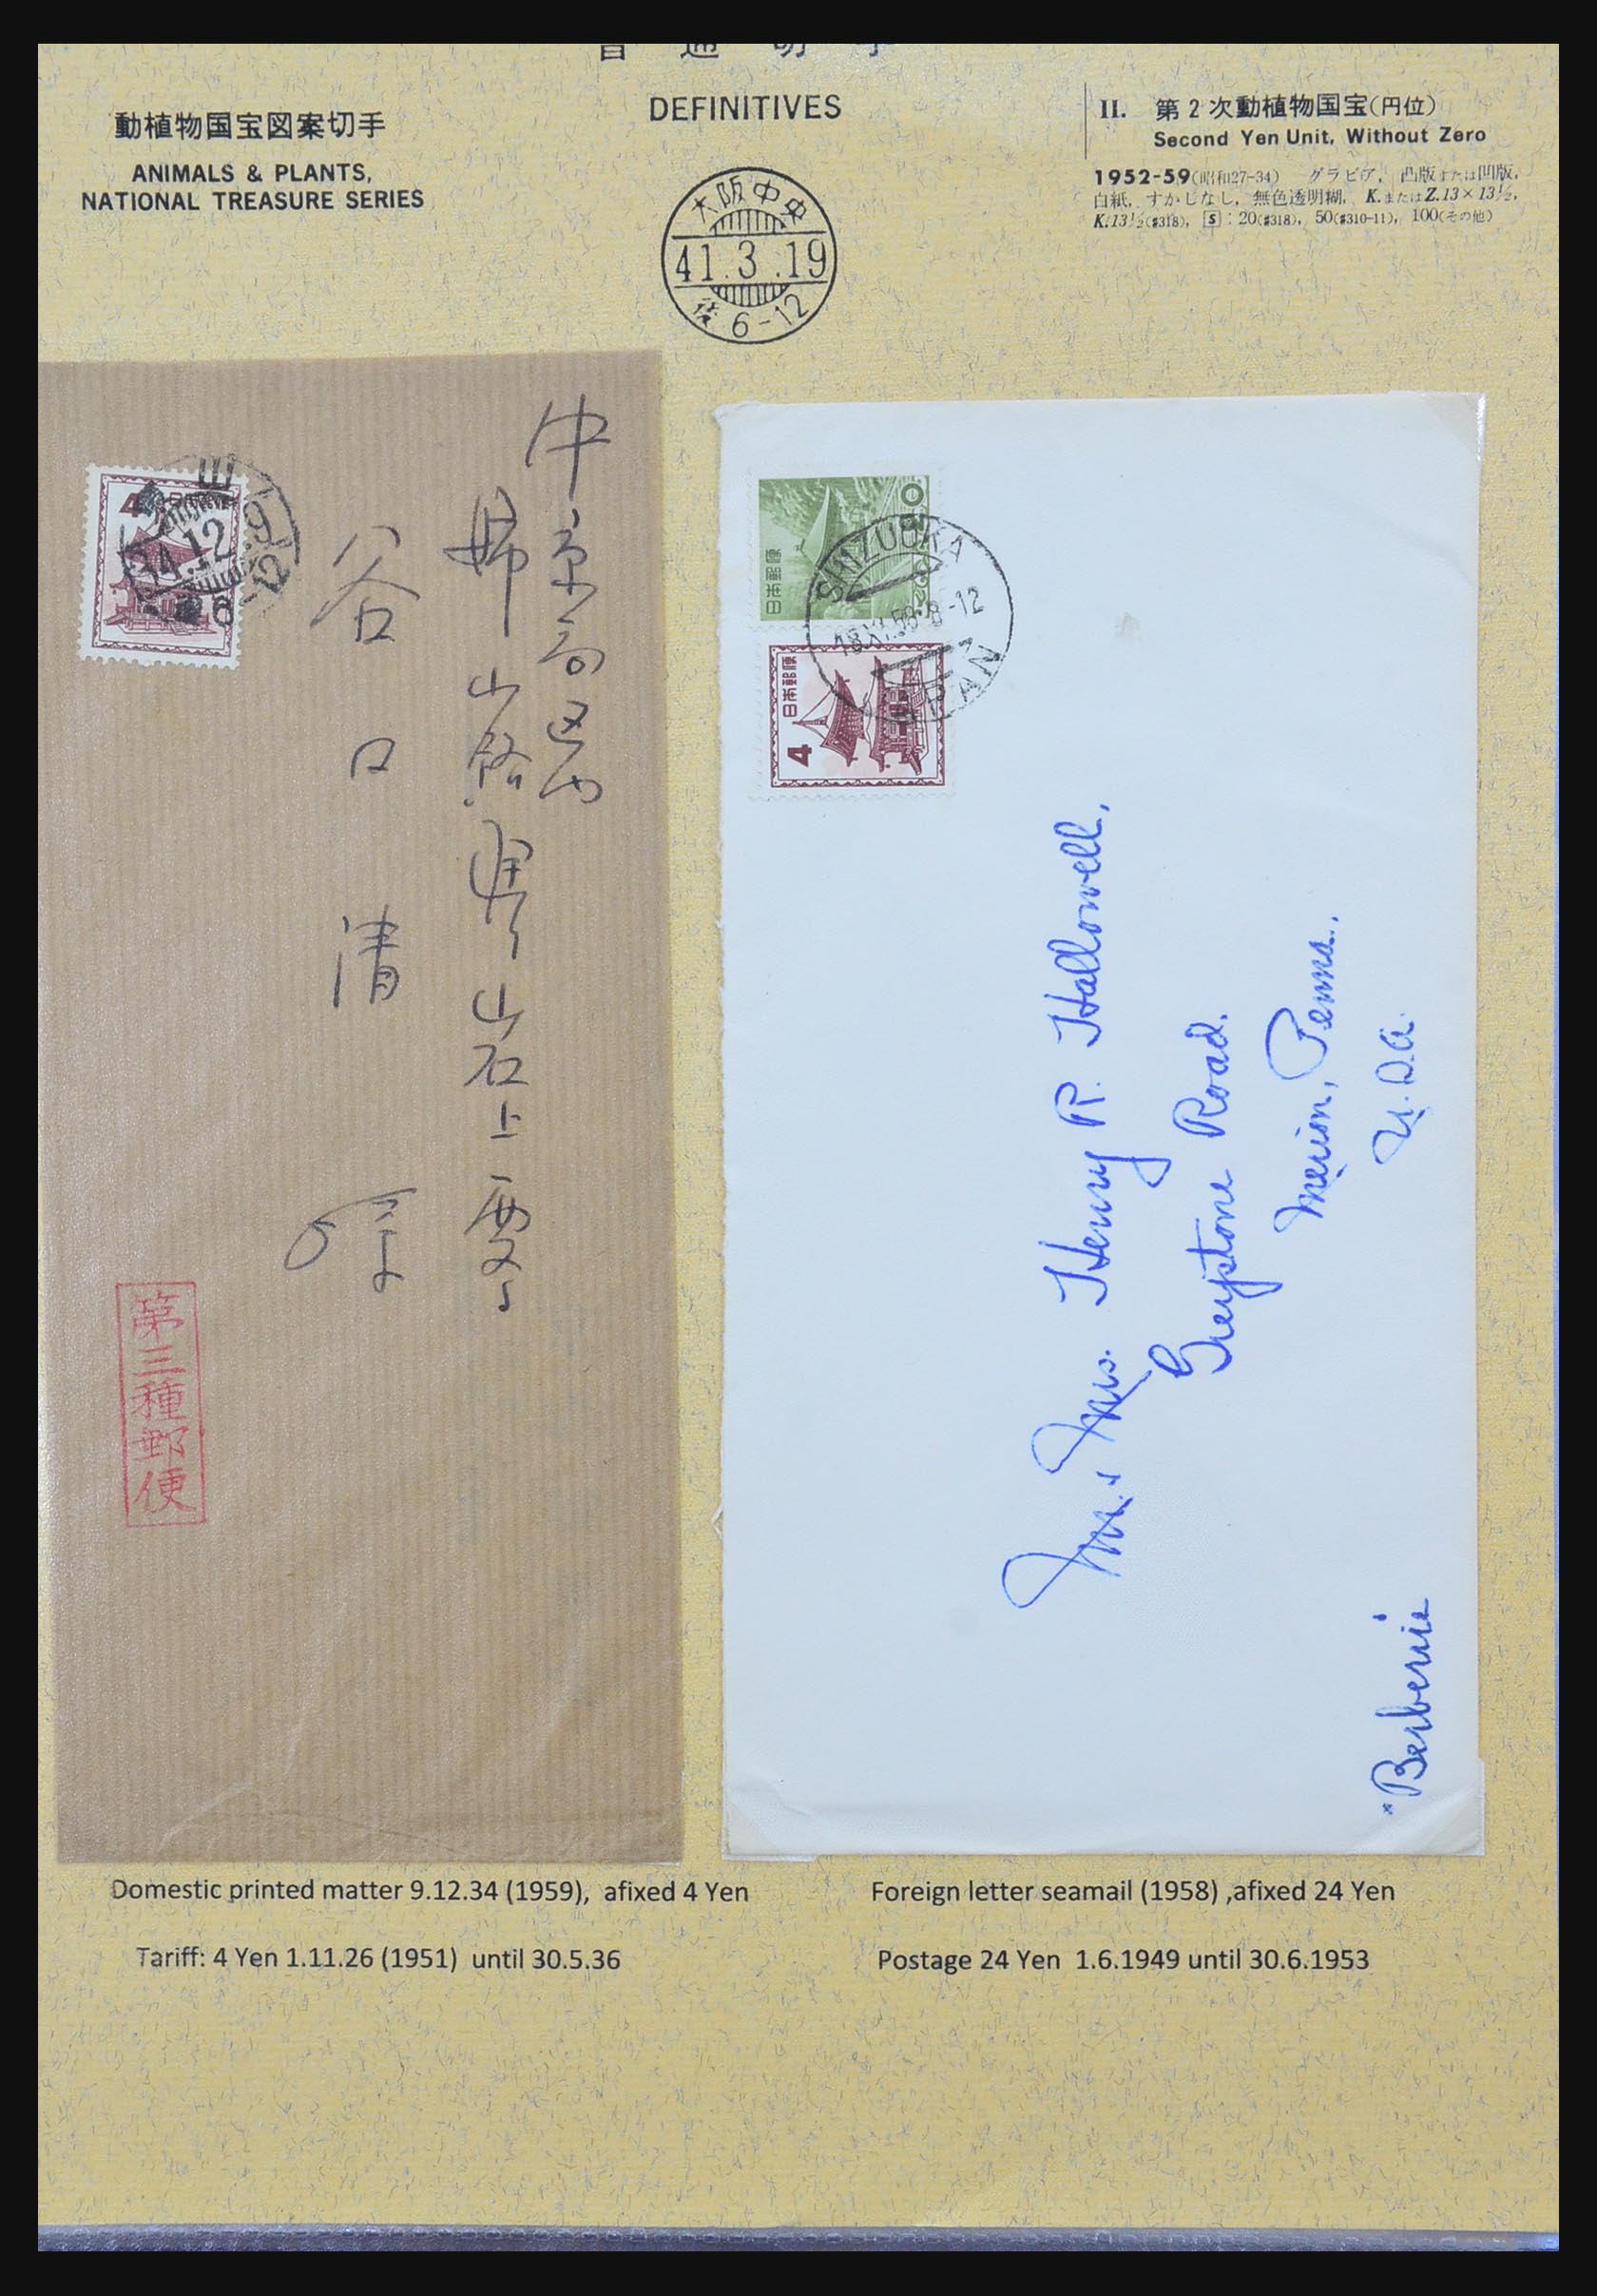 普通切手
DEFINITIVES
動植物国宝図案切手
ANIMALS & PLANTS,
NATIONAL TREASURE SERIES
II. 第2次動植物国宝(円位)
Second Yen Unit, Without Zero
1952-59(昭和27-34) グラビア, 凸版または凹版,
白紙, すかしなし, 無色透明糊, K.またはZ.13×13½,
K.13½(#318), S : 20(#318), 50(#310-11), 100(その他)
大阪中央
41.3.19
後6-12
34.12.9
中京
山
岩上
谷口清
第三種郵便
日本郵便
SHIZUOKA
18.XI.58. 8-12
JAPAN
日本郵便
4
Mr. + Mrs. Henry R. Hallowell,
Greystone Road.
Merion, Penna.
U.S.A.
Domestic printed matter 9.12.34 (1959), afixed 4 Yen
Tariff: 4 Yen 1.11.26 (1951) until 30.5.36
Foreign letter seamail (1958) ,afixed 24 Yen
Postage 24 Yen 1.6.1949 until 30.6.1953